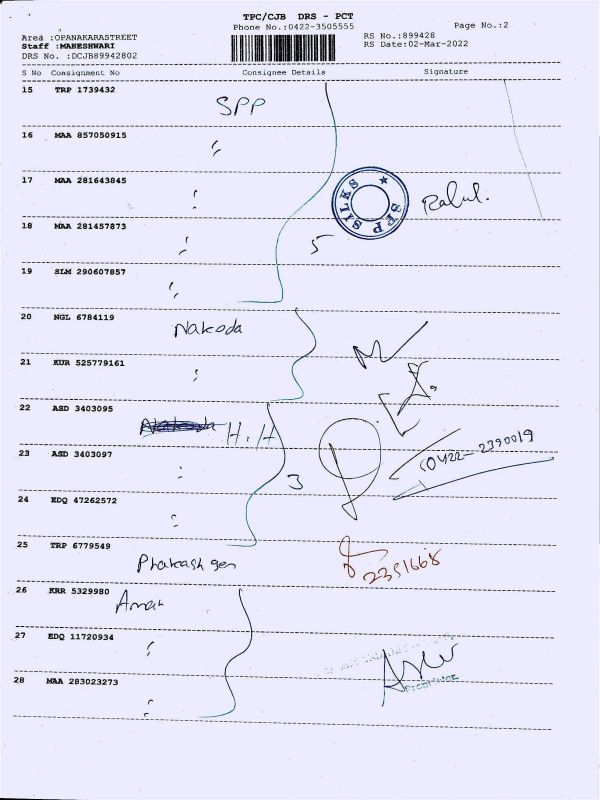 TPC/CJB DRS - PCT
Phone No.:0422-3505555
Page No.:2
Area :OPANAKARASTREET
Staff :MAHESHWARI
DRS No. :DCJB89942802
RS No.:899428
RS Date:02-Mar-2022
S No Consignment No Consignee Details Signature
15 TRP 1739432
SPP
16 MAA 857050915
17 MAA 281643845
SPP SILKS
Rahul.
18 MAA 281457873
5
19 SLM 290607857
20 NGL 6784119
Nakoda
21 KUR 525779161
22 ASD 3403095
H.H
0422-2390019
23 ASD 3403097
3
24 EDQ 47262572
25 TRP 6779549
Phakash gen
2351668
26 KRR 5329980
Aman
27 EDQ 11720934
28 MAA 283023273